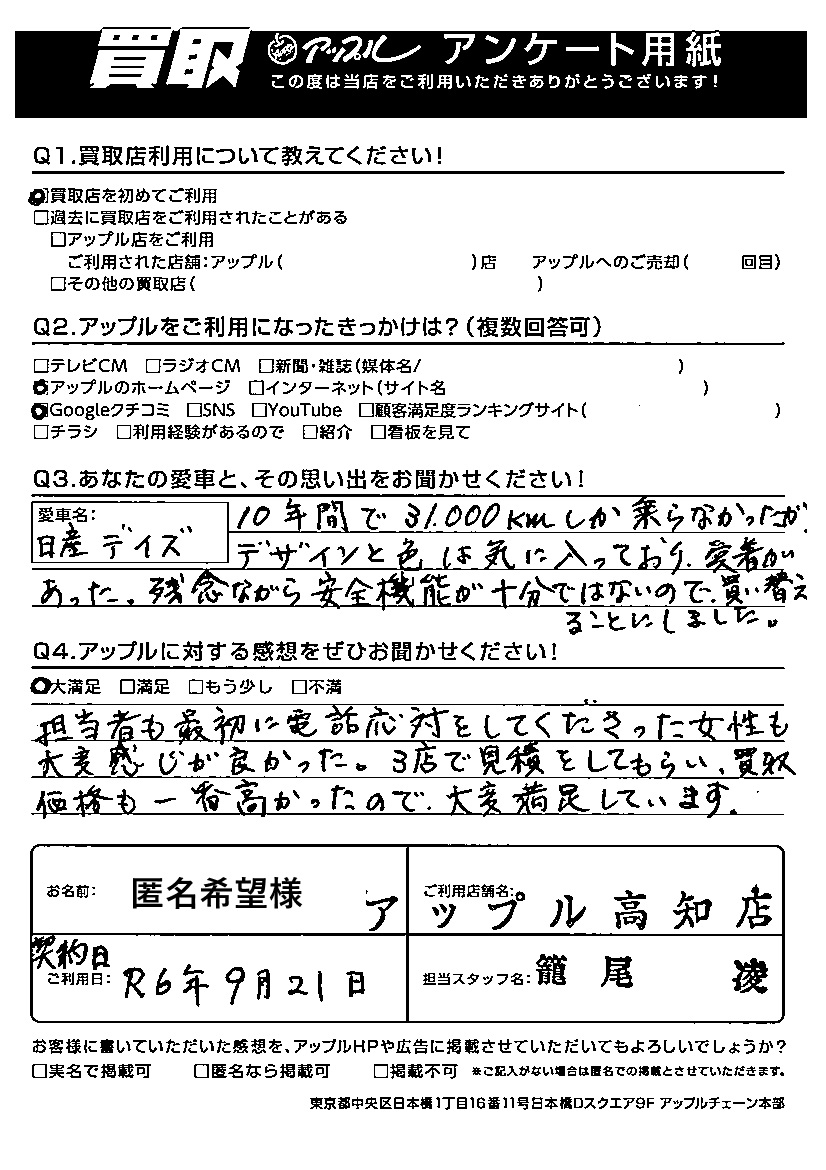 買取 アップル アンケート用紙
この度は当店をご利用いただきありがとうございます!
Q1.買取店利用について教えてください!
□買取店を初めてご利用
□過去に買取店をご利用されたことがある
□アップル店をご利用
ご利用された店舗:アップル( )店 アップルへのご売却( 回目)
□その他の買取店( )
Q2.アップルをご利用になったきっかけは?(複数回答可)
□テレビCM □ラジオCM □新聞・雑誌(媒体名/ )
□アップルのホームページ □インターネット(サイト名 )
□Googleクチコミ □SNS □YouTube □顧客満足度ランキングサイト( )
□チラシ □利用経験があるので □紹介 □看板を見て
Q3.あなたの愛車と、その思い出をお聞かせください!
愛車名:
日産 デイズ
10年間で31.000kmしか乗らなかったが、
デザインと色は気に入っており、愛着が
あった。残念ながら安全機能が十分ではないので、買い替え
ることにしました。
Q4.アップルに対する感想をぜひお聞かせください!
□大満足 □満足 □もう少し □不満
担当者も最初に電話応対をしてくださった女性も
大変感じが良かった。3店で見積をしてもらい、買取
価格も一番高かったので、大変満足しています。
お名前: 匿名希望様
ご利用店舗名: アップル高知店
契約日
ご利用日: R6年9月21日
担当スタッフ名: 籠尾 凌
お客様に書いていただいた感想を、アップルHPや広告に掲載させていただいてもよろしいでしょうか?
□実名で掲載可 □匿名なら掲載可 □掲載不可 ※ご記入がない場合は匿名での掲載とさせていただきます。
東京都中央区日本橋1丁目16番11号日本橋Dスクエア9F アップルチェーン本部